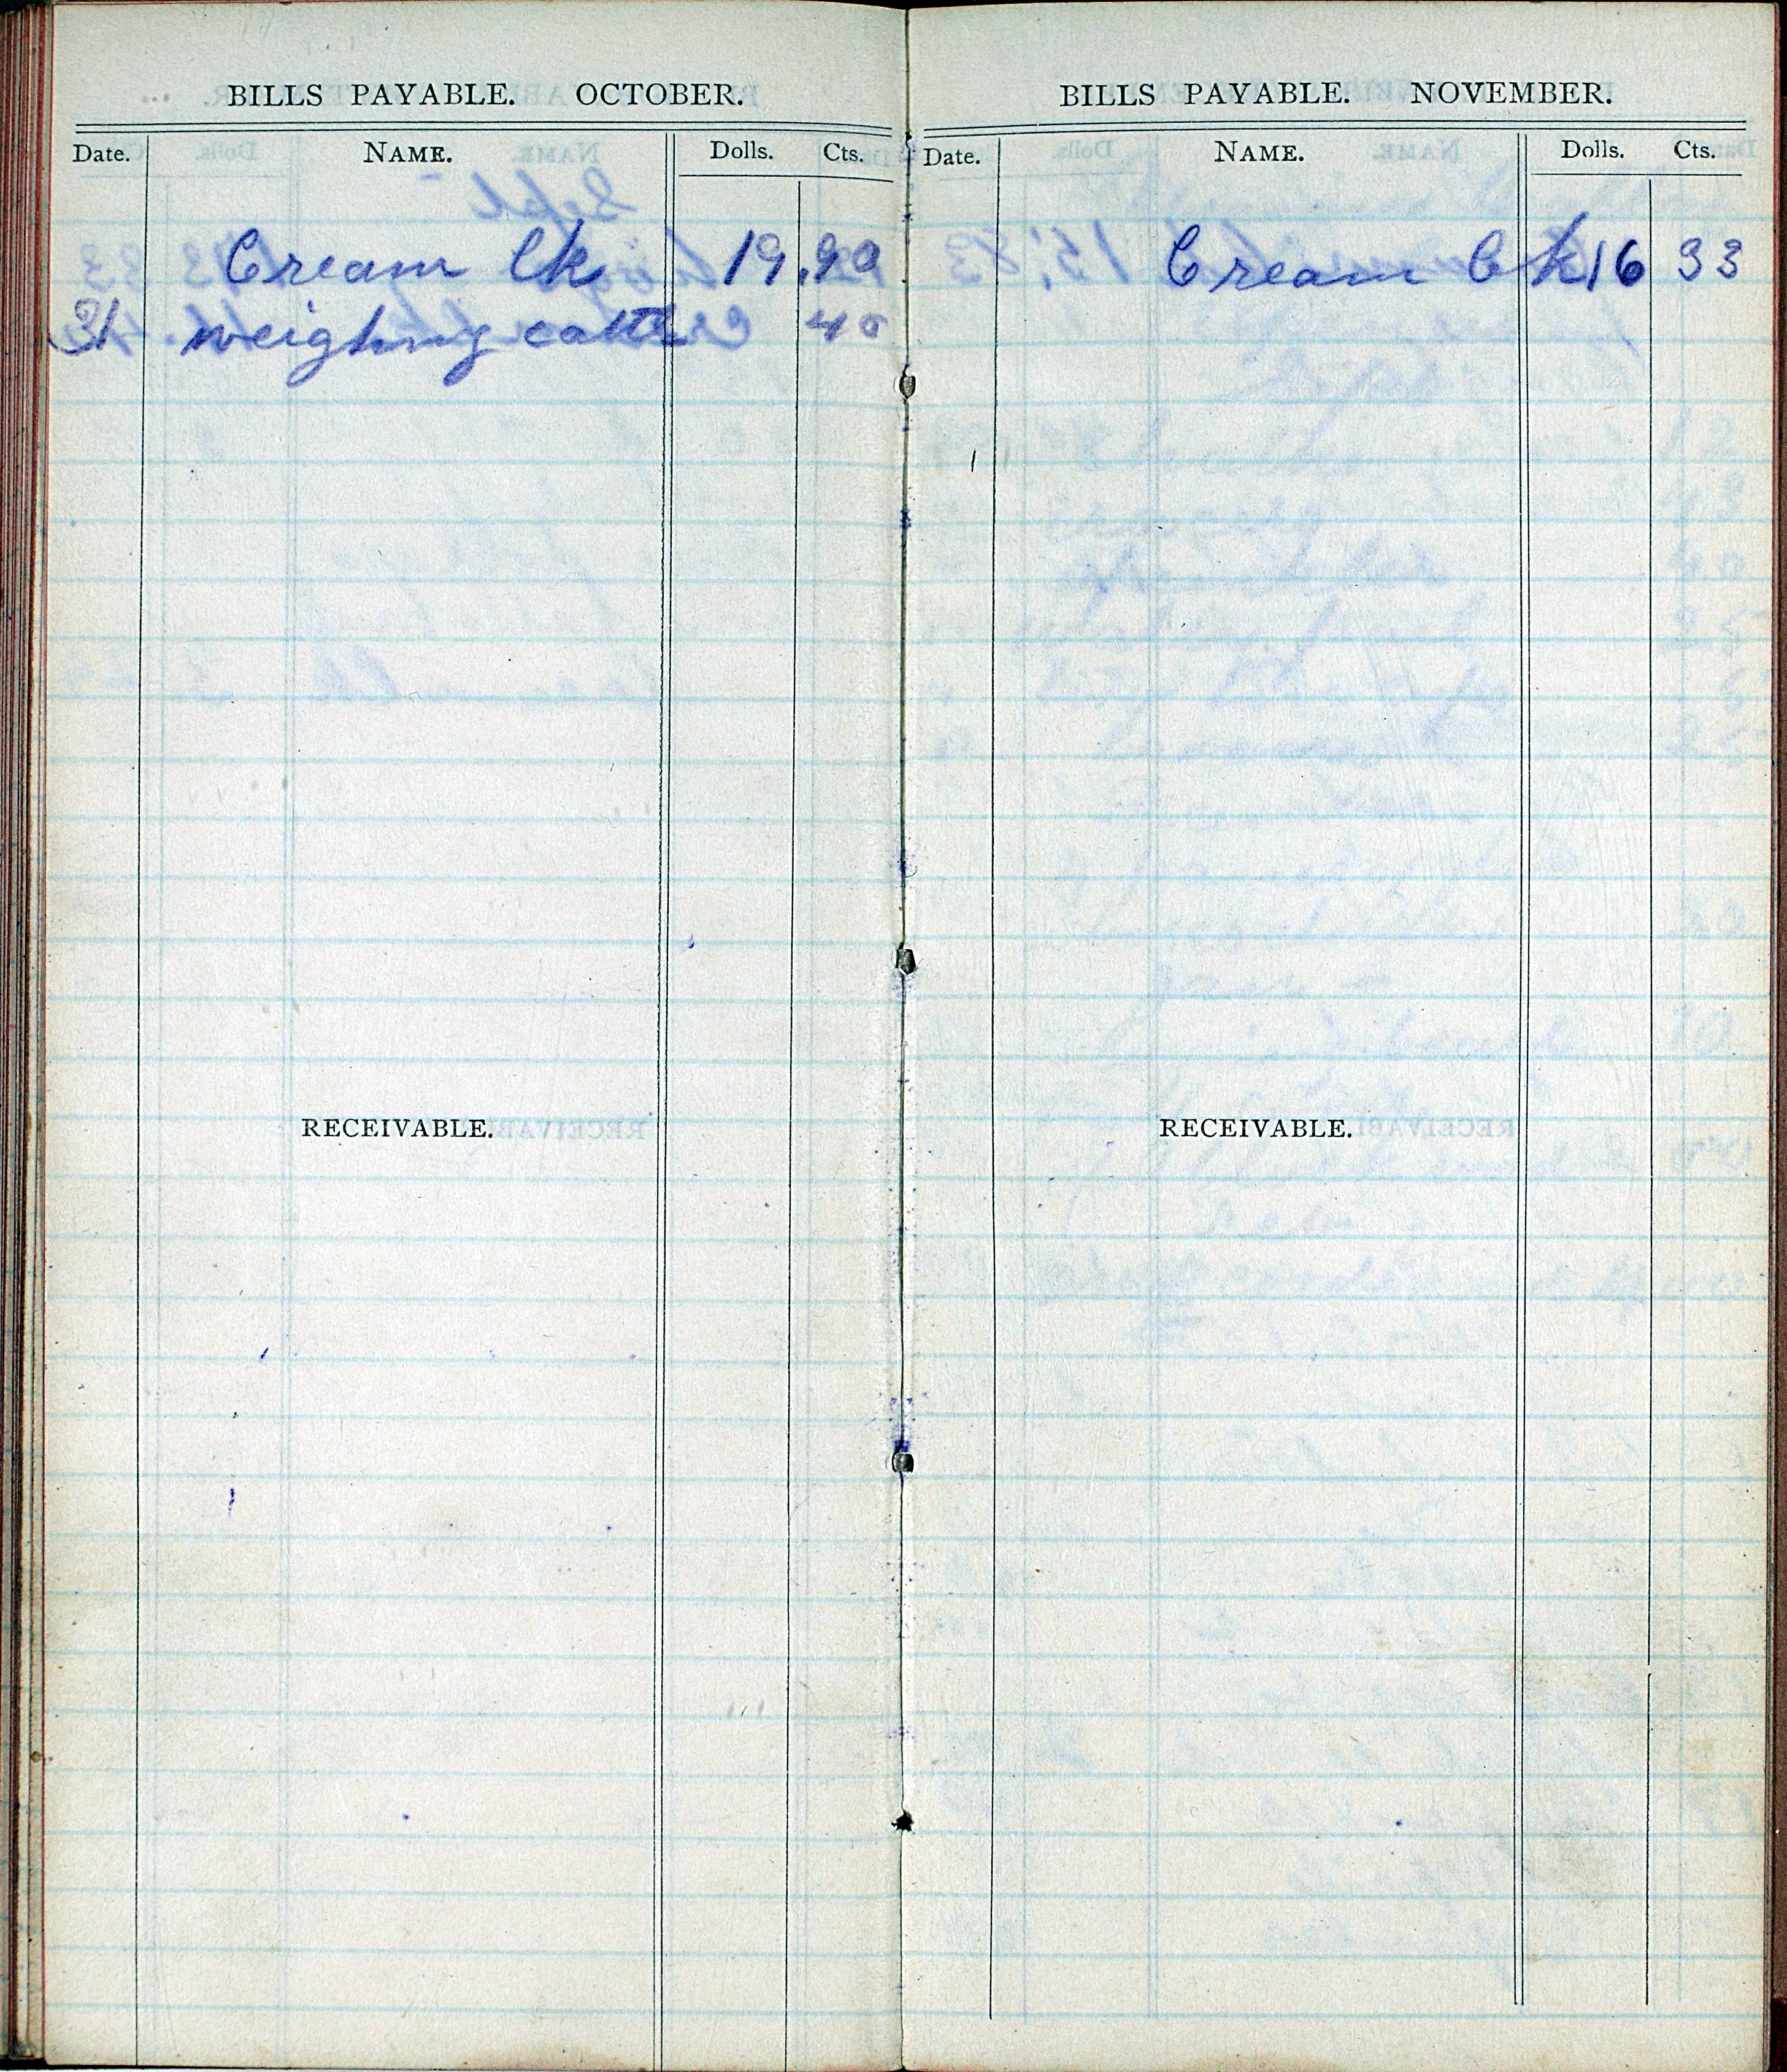 BILLS PAYABLE. OCTOBER.
Date. NAME. Dolls. Cts.
Cream Ck 19.90
31 weighing cattle 40
RECEIVABLE.
BILLS PAYABLE. NOVEMBER.
Date. NAME. Dolls. Cts.
Cream Ck 16 33
RECEIVABLE.